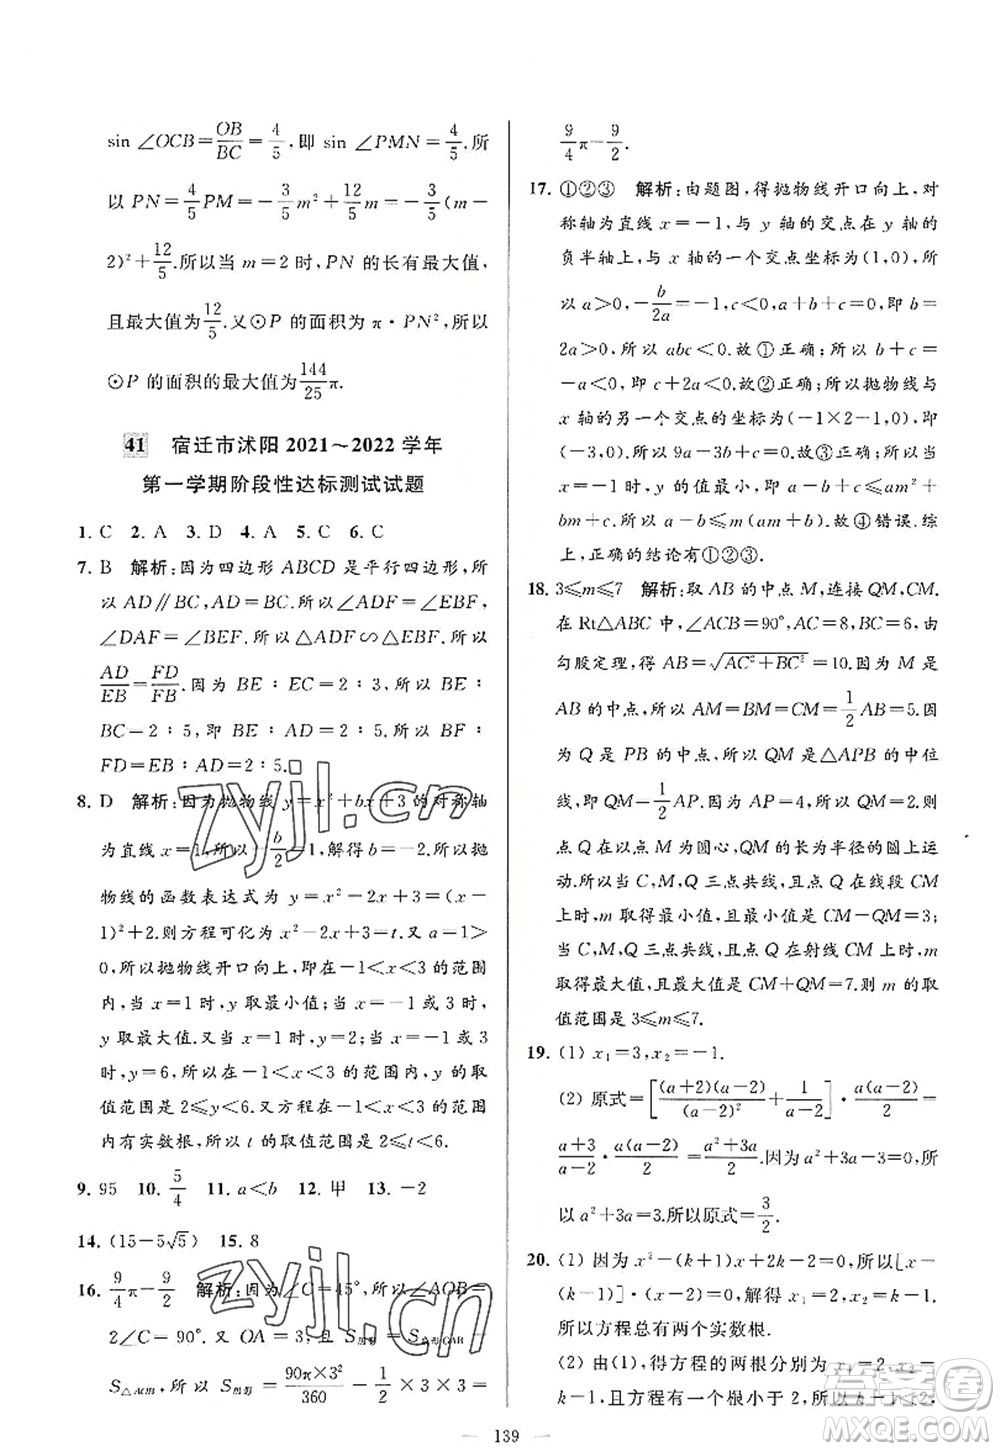 sin ∠OCB=OB/BC=4/5,即 sin ∠PMN=4/5,所
以 PN=4/5PM=-3/5m²+12/5m=-3/5(m-
2)²+12/5.所以当 m=2 时,PN 的长有最大值,
且最大值为12/5.又⊙P 的面积为 π·PN²,所以
⊙P 的面积的最大值为144/25π.
41 宿迁市沭阳 2021~2022 学年
第一学期阶段性达标测试试题
1. C 2. A 3. D 4. A 5. C 6. C
7. B 解析:因为四边形 ABCD 是平行四边形,所
以 AD∥BC,所以 ∠ADF=∠EBF,
∠DAF=∠BEF.所以 △ADF∽△EBF.所以
AD/EB=FD/FB.因为 BE∶EC=2∶3,所以 BE∶
BC=2∶5,即 BE∶AD=2∶5.所以 BF∶
FD=BE∶AD=2∶5.
8. D 解析:因为抛物线 y=x²+bx+3 的对称轴
为直线 x=1,所以-b/2=1,解得 b=-2.所以抛
物线的函数表达式为 y=x²-2x+3=(x-
1)²+2.则方程可化为 x²-2x+3=t.又 a=1>
0,所以抛物线开口向上,即在-1<x<3 的范围
内,当 x=1 时,y 取最小值;当 x=-1 或 x=3
时,y 取最大值.又当 x=1 时,y=2;当 x=3 时,
y=6,所以在-1<x<3 的范围内,y 的取值范围
是 2≤y<6.又方程在-1<x<3 的范围
内有实数根,所以 t 的取值范围是 2≤t<6.
9. 95 10. 5/4 11. a<b 12. 甲 13. -2
14. (15-5√5) 15. 8
16. 9/4π-9/2 解析:因为∠C=45°,所以∠AOB=
2∠C=90°.又 OA=3,且 S阴影=S扇形OAB-
S△AOB,所以 S阴影=90π×3²/360-1/2×3×3=
9/4π-9/2.
17. ①②③ 解析:由题图,得抛物线开口向上,对
称轴为直线 x=-1,与 y 轴的交点在 y 轴的
负半轴上,与 x 轴的一个交点坐标为(1,0),所
以 a>0,-b/2a=-1,c<0,a+b+c=0.所以 b=
2a>0,所以 abc<0.故①正确;所以 b+c=
-a<0,所以 c+2a<0.故②正确;所以抛物线与
x 轴的另一个交点的坐标为(-1×2-1,0),即
(-3,0).所以 9a-3b+c=0.故③正确;因为当
x=-1 时,y 的值最小,所以 a-b+c≤am²+
bm+c,所以 a-b≤m(am+b).故④错误.综
上,正确的结论有①②③.
18. 3≤m≤7 解析:取 AB 的中点 M,连接 QM,CM.
在 Rt△ABC 中,∠ACB=90°,AC=8,BC=6,由
勾股定理,得 AB=√AC²+BC²=10.因为 M 是
AB 的中点,所以 AM=BM=CM=1/2AB=5.因
为 Q 是 PB 的中点,所以 QM 是△APB 的中位
线,所以 QM=1/2AP.因为 AP=4,所以 QM=2.则
点 Q 在以点 M 为圆心,QM 的长为半径的圆上运
动.所以当 C,Q,M 三点共线,且点 Q 在线段 CM
上时,m 取得最小值,且最小值为 CM-QM=3;
当 C,Q,M 三点共线,且点 Q 在射线 CM 上时,m
取得最大值,且最大值为 CM+QM=7.则 m 的取
值范围是 3≤m≤7.
19. (1) x₁=3,x₂=-1.
(2) 原式=[(a+2)(a-2)/(a-2)²+1/(a-2)]·a(a-2)/2=
(a+3)/(a-2)·a(a-2)/2=(a²+3a)/2.因为 a²+3a-3=0,所
以 a²+3a=3.所以原式=3/2.
20. (1) 因为 x²-(k+1)x+2k-2=0,所以[x-
(k-1)]·(x-2)=0,解得 x₁=2,x₂=k-1.
所以方程总有两个实数根.
(2) 由(1),得方程的两根分别为 x₁=2,x₂=
k-1,且方程有一个根小于 2,所以 k-1<2.
139
zyjl.cn
zyjl.cn
答案圈
MXQE.COM